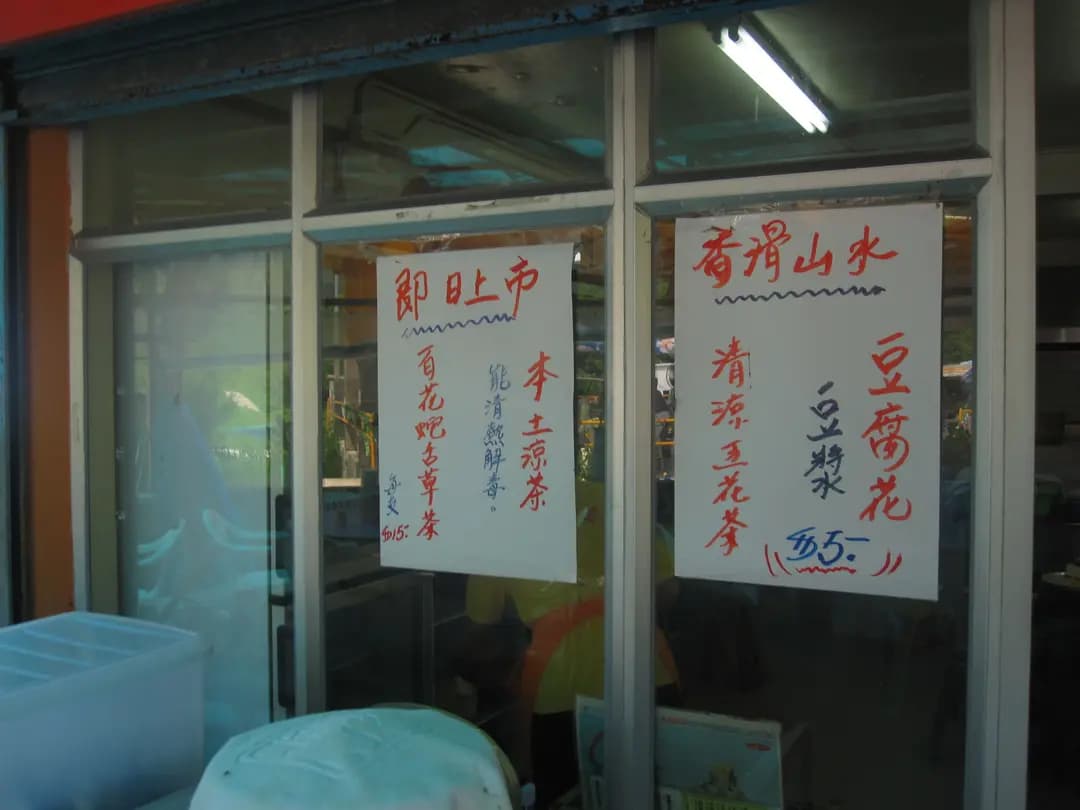 即日上市
本土涼茶
能清熱解毒。
百花蛇舌草茶
每支
$15.-
香滑山水
豆腐花
豆漿
$5.-
清涼五花茶